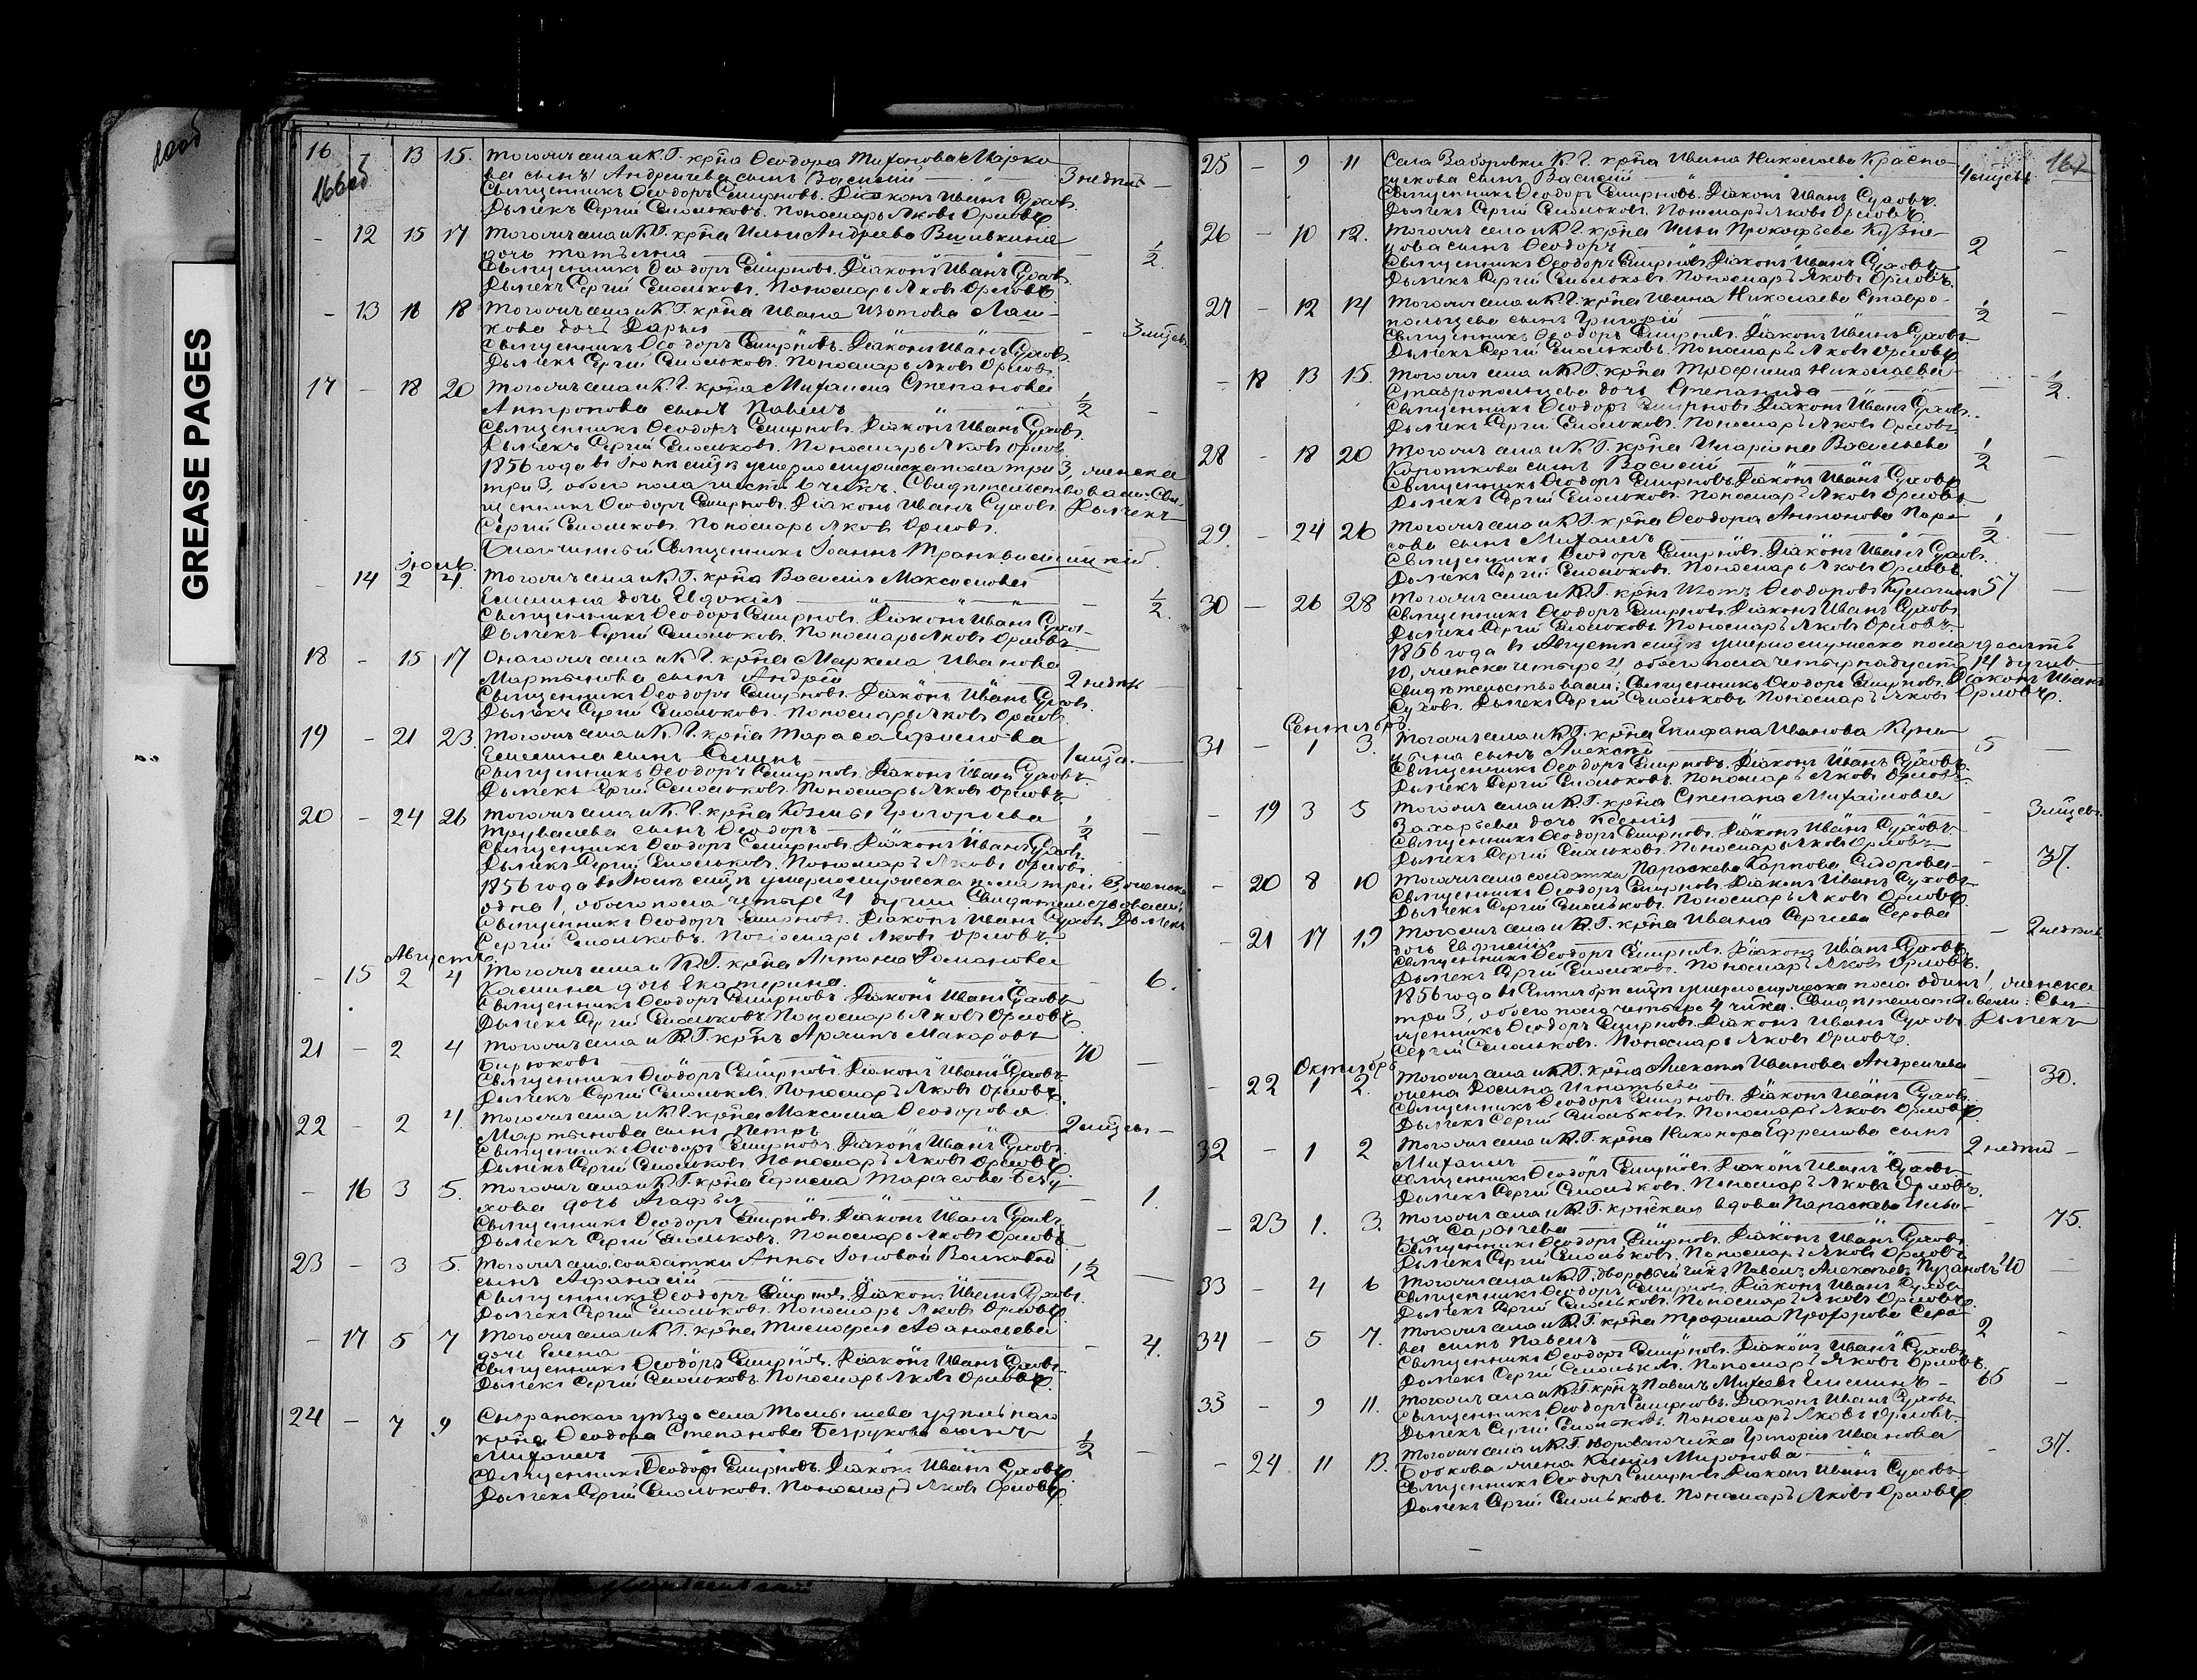 GREASE PAGES
166об
16 - 13 15. Тогожъ села и К. Г. крѣна Ѳеодора
сынъ Андреева сынъ Василий 3 недѣль -
Священникъ Ѳеодоръ Смирновъ. Діаконъ Иванъ Суховъ.
Дьячекъ Сергій Смольковъ. Пономарь Яковъ Орловъ.
- 12 15 17 Тогожъ села и К. Г. крѣна Ильи Андреева
дочь Татьяна - 1/2.
Священникъ Ѳеодоръ Смирновъ. Діаконъ Иванъ Суховъ.
Дьячекъ Сергій Смольковъ. Пономарь Яковъ Орловъ.
- 13 16 18 Тогожъ села и К. Г. крѣна Ивана Изотова
кова дочь Дарья - 3 мѣсев
Священникъ Ѳеодоръ Смирновъ. Діаконъ Иванъ Суховъ.
Дьячекъ Сергій Смольковъ. Пономарь Яковъ Орловъ.
17 - 18 20 Тогожъ села и К. Г. крѣна Михаила Степанова
Антропова сынъ Павелъ 1/2 -
Священникъ Ѳеодоръ Смирновъ. Діаконъ Иванъ Суховъ.
Дьячекъ Сергій Смольковъ. Пономарь Яковъ Орловъ.
1856 года въ Іюнѣ мѣцѣ умерло мужеска пола три 3, женска
три 3, обоего пола шесть 6 чѣкъ. Свидѣтельствовали: Свя-
щенникъ Ѳеодоръ Смирновъ. Діаконъ Иванъ Суховъ. Дьячекъ
Сергій Смольковъ. Пономарь Яковъ Орловъ.
Благочинный Священникъ Іоаннъ Транквиллицкій
Іюль.
- 14 2 4. Тогожъ села и К. Г. крѣна Василія Максимова
Елшина дочь Евдокія - 1/2.
Священникъ Ѳеодоръ Смирновъ. Діаконъ Иванъ Суховъ.
Дьячекъ Сергій Смольковъ. Пономарь Яковъ Орловъ.
18 - 15 17 Онагожъ села и К. Г. крѣна Маркела Иванова
Мартынова сынъ Андрей 2 недѣли
Священникъ Ѳеодоръ Смирновъ. Діаконъ Иванъ Суховъ.
Дьячекъ Сергій Смольковъ. Пономарь Яковъ Орловъ.
19 - 21 23. Тогожъ села и К. Г. крѣна Тараса Ефимова
Елшина сынъ 1 мѣца. -
Священникъ Ѳеодоръ Смирновъ. Діаконъ Иванъ Суховъ.
Дьячекъ Сергій Смольковъ. Пономарь Яковъ Орловъ.
20 - 24 26 Тогожъ села и К. Г. крѣна Козьмы Григорьева
сынъ Ѳеодоръ 1/2 -
Священникъ Ѳеодоръ Смирновъ. Діаконъ Иванъ Суховъ.
Дьячекъ Сергій Смольковъ. Пономарь Яковъ Орловъ.
1856 года въ Іюлѣ мѣцѣ умерло мужеска пола три 3, женска
одна 1, обоего пола четыре 4 души. Свидѣтельствовали:
Священникъ Ѳеодоръ Смирновъ. Діаконъ Иванъ Суховъ. Дьячекъ
Сергій Смольковъ. Пономарь Яковъ Орловъ.
Августъ.
- 15 2 4 Тогожъ села и К. Г. крѣна Антона Романова
дочь Екатерина. - 6.
Священникъ Ѳеодоръ Смирновъ. Діаконъ Иванъ Суховъ.
Дьячекъ Сергій Смольковъ. Пономарь Яковъ Орловъ.
21 - 2 4 Тогожъ села и К. Г. крѣнъ Макаровъ
Бирюковъ 70 -
Священникъ Ѳеодоръ Смирновъ. Діаконъ Иванъ Суховъ.
Дьячекъ Сергій Смольковъ. Пономарь Яковъ Орловъ.
22 - 2 4. Тогожъ села и К. Г. крѣна Максима Ѳеодорова
Мартынова сынъ Петръ 2 мѣсевъ -
Священникъ Ѳеодоръ Смирновъ. Діаконъ Иванъ Суховъ.
Дьячекъ Сергій Смольковъ. Пономарь Яковъ Орловъ.
- 16 3 5. Тогожъ села и К. Г. крѣна Ефима Тарасова
хова дочь Агафья - 1.
Священникъ Ѳеодоръ Смирновъ. Діаконъ Иванъ Суховъ.
Дьячекъ Сергій Смольковъ. Пономарь Яковъ Орловъ.
23 - 3 5. Тогожъ села солдатки Анны Іоновой Волковой
сынъ Афанасій 1 1/2 -
Священникъ Ѳеодоръ Смирновъ. Діаконъ Иванъ Суховъ.
Дьячекъ Сергій Смольковъ. Пономарь Яковъ Орловъ.
- 17 5 7 Тогожъ села и К. Г. крѣна Тимофея Афанасьева
дочь Елена - 4.
Священникъ Ѳеодоръ Смирновъ. Діаконъ Иванъ Суховъ.
Дьячекъ Сергій Смольковъ. Пономарь Яковъ Орловъ.
24 - 7 9 Сызранскаго уѣзда села Томышева удѣльнаго
крѣна Ѳеодора Степанова Безрукова сынъ
Михаилъ 1/2 -
Священникъ Ѳеодоръ Смирновъ. Діаконъ Иванъ Суховъ.
Дьячекъ Сергій Смольковъ. Пономарь Яковъ Орловъ.
167
25 - 9 11 Села Заборовки К. Г. крѣна Ивана Николаева Красно-
сынъ Василій 4 мѣсевъ
Священникъ Ѳеодоръ Смирновъ. Діаконъ Иванъ Суховъ.
Дьячекъ Сергій Смольковъ. Пономарь Яковъ Орловъ.
26 - 10 12. Тогожъ села и К. Г. крѣна Ильи Прокофьева Кузне-
цова сынъ Ѳеодоръ 2 -
Священникъ Ѳеодоръ Смирновъ. Діаконъ Иванъ Суховъ.
Дьячекъ Сергій Смольковъ. Пономарь Яковъ Орловъ.
27 - 12 14 Тогожъ села и К. Г. крѣна Ивана Николаева Ставро-
польцева сынъ Григорій 1/2 -
Священникъ Ѳеодоръ Смирновъ. Діаконъ Иванъ Суховъ.
Дьячекъ Сергій Смольковъ. Пономарь Яковъ Орловъ.
- 18 13 15. Тогожъ села и К. Г. крѣна Трофима Николаева
Ставропольцева дочь Степанида - 1/2.
Священникъ Ѳеодоръ Смирновъ. Діаконъ Иванъ Суховъ.
Дьячекъ Сергій Смольковъ. Пономарь Яковъ Орловъ.
28 - 18 20 Тогожъ села и К. Г. крѣна Иларіона Васильева
Короткова сынъ Василій 1/2 -
Священникъ Ѳеодоръ Смирновъ. Діаконъ Иванъ Суховъ.
Дьячекъ Сергій Смольковъ. Пономарь Яковъ Орловъ.
29. - 24 26 Тогожъ села и К. Г. крѣна Ѳеодора Антонова
сова сынъ Михаилъ 1/2. -
Священникъ Ѳеодоръ Смирновъ. Діаконъ Иванъ Суховъ.
Дьячекъ Сергій Смольковъ. Пономарь Яковъ Орловъ.
30 - 26 28 Тогожъ села и К. Г. крѣнъ Изотъ Ѳеодоровъ Кулагинъ 57 -
Священникъ Ѳеодоръ Смирновъ. Діаконъ Иванъ Суховъ.
Дьячекъ Сергій Смольковъ. Пономарь Яковъ Орловъ.
1856 года въ Августѣ мѣцѣ умерло мужеска пола десять
10, женска четыре 4 обоего пола четырнадцать 14 душъ.
Свидѣтельствовали: Священникъ Ѳеодоръ Смирновъ. Діаконъ Иванъ
Суховъ. Дьячекъ Сергій Смольковъ. Пономарь Яковъ Орловъ.
Сентябрь.
31 - 1 3. Тогожъ села и К. Г. крѣна Епифана Иванова
сынъ Алексѣй 5 -
Священникъ Ѳеодоръ Смирновъ. Діаконъ Иванъ Суховъ.
Дьячекъ Сергій Смольковъ. Пономарь Яковъ Орловъ.
- 19 3 5 Тогожъ села и К. Г. крѣна Степана Михайлова
Захарьева дочь Ксенія - 3 мѣсев.
Священникъ Ѳеодоръ Смирновъ. Діаконъ Иванъ Суховъ.
Дьячекъ Сергій Смольковъ. Пономарь Яковъ Орловъ.
- 20 8 10 Тогожъ села солдатка Параскева Карпова Сидорова - 37.
Священникъ Ѳеодоръ Смирновъ. Діаконъ Иванъ Суховъ.
Дьячекъ Сергій Смольковъ. Пономарь Яковъ Орловъ.
- 21 17 19 Тогожъ села и К. Г. крѣна Ивана Сергѣева Серова
дочь Евфимія - 2 недѣль
Священникъ Ѳеодоръ Смирновъ. Діаконъ Иванъ Суховъ.
Дьячекъ Сергій Смольковъ. Пономарь Яковъ Орловъ.
1856 года въ Сентябрѣ мѣцѣ умерло мужеска пола одинъ 1, женска
три 3, обоего пола четыре 4 чѣка. Свидѣтельствовали: Свя-
щенникъ Ѳеодоръ Смирновъ. Діаконъ Иванъ Суховъ. Дьячекъ
Сергій Смольковъ. Пономарь Яковъ Орловъ.
Октябрь
- 22 1 2. Тогожъ села и К. Г. крѣна Алексѣя Иванова Андреичева
жена Досина Игнатьева - 30.
Священникъ Ѳеодоръ Смирновъ. Діаконъ Иванъ Суховъ.
Дьячекъ Сергій Смольковъ. Пономарь Яковъ Орловъ.
32 - 1 2 Тогожъ села и К. Г. крѣна Никонора Ефремова сынъ
Михаилъ 2 недѣль -
Священникъ Ѳеодоръ Смирновъ. Діаконъ Иванъ Суховъ.
Дьячекъ Сергій Смольковъ. Пономарь Яковъ Орловъ.
- 23 1. 3. Тогожъ села и К. Г. крѣнская вдова Параскева Ильи-
на - 75.
Священникъ Ѳеодоръ Смирновъ. Діаконъ Иванъ Суховъ.
Дьячекъ Сергій Смольковъ. Пономарь Яковъ Орловъ.
33 - 4 6 Тогожъ села и К. Г. дворовый чѣкъ Павелъ Алексѣевъ Пузановъ 40 -
Священникъ Ѳеодоръ Смирновъ. Діаконъ Иванъ Суховъ.
Дьячекъ Сергій Смольковъ. Пономарь Яковъ Орловъ.
34 - 5 7. Тогожъ села и К. Г. крѣна Трофима Прохорова Серо-
ва сынъ Павелъ 2 -
Священникъ Ѳеодоръ Смирновъ. Діаконъ Иванъ Суховъ.
Дьячекъ Сергій Смольковъ. Пономарь Яковъ Орловъ.
35 - 9 11. Тогожъ села и К. Г. крѣнъ Павелъ Михеевъ Елшинъ - 65 -
Священникъ Ѳеодоръ Смирновъ. Діаконъ Иванъ Суховъ.
Дьячекъ Сергій Смольковъ. Пономарь Яковъ Орловъ.
- 24 11 13. Тогожъ села и К. Г. двороваго чѣка Григорія Иванова
Бобкова жена Ксенія Миронова - 37.
Священникъ Ѳеодоръ Смирновъ. Діаконъ Иванъ Суховъ.
Дьячекъ Сергій Смольковъ. Пономарь Яковъ Орловъ.